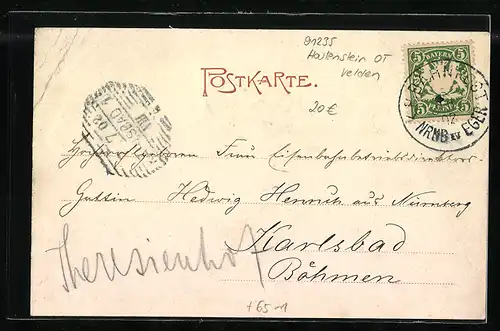 91235
Hartenstein OT
Velden
POSTKARTE.
20 €
5 BAYERN 5
5 5
BAHNPOST
NRNB. EGER
7 02
Hochwohlgeboren Frau Eisenbahnbetriebsdirektors-
Gattin Hedwig Henrich aus Nürnberg
Karlsbad
Theresienhof
Böhmen
+65-1